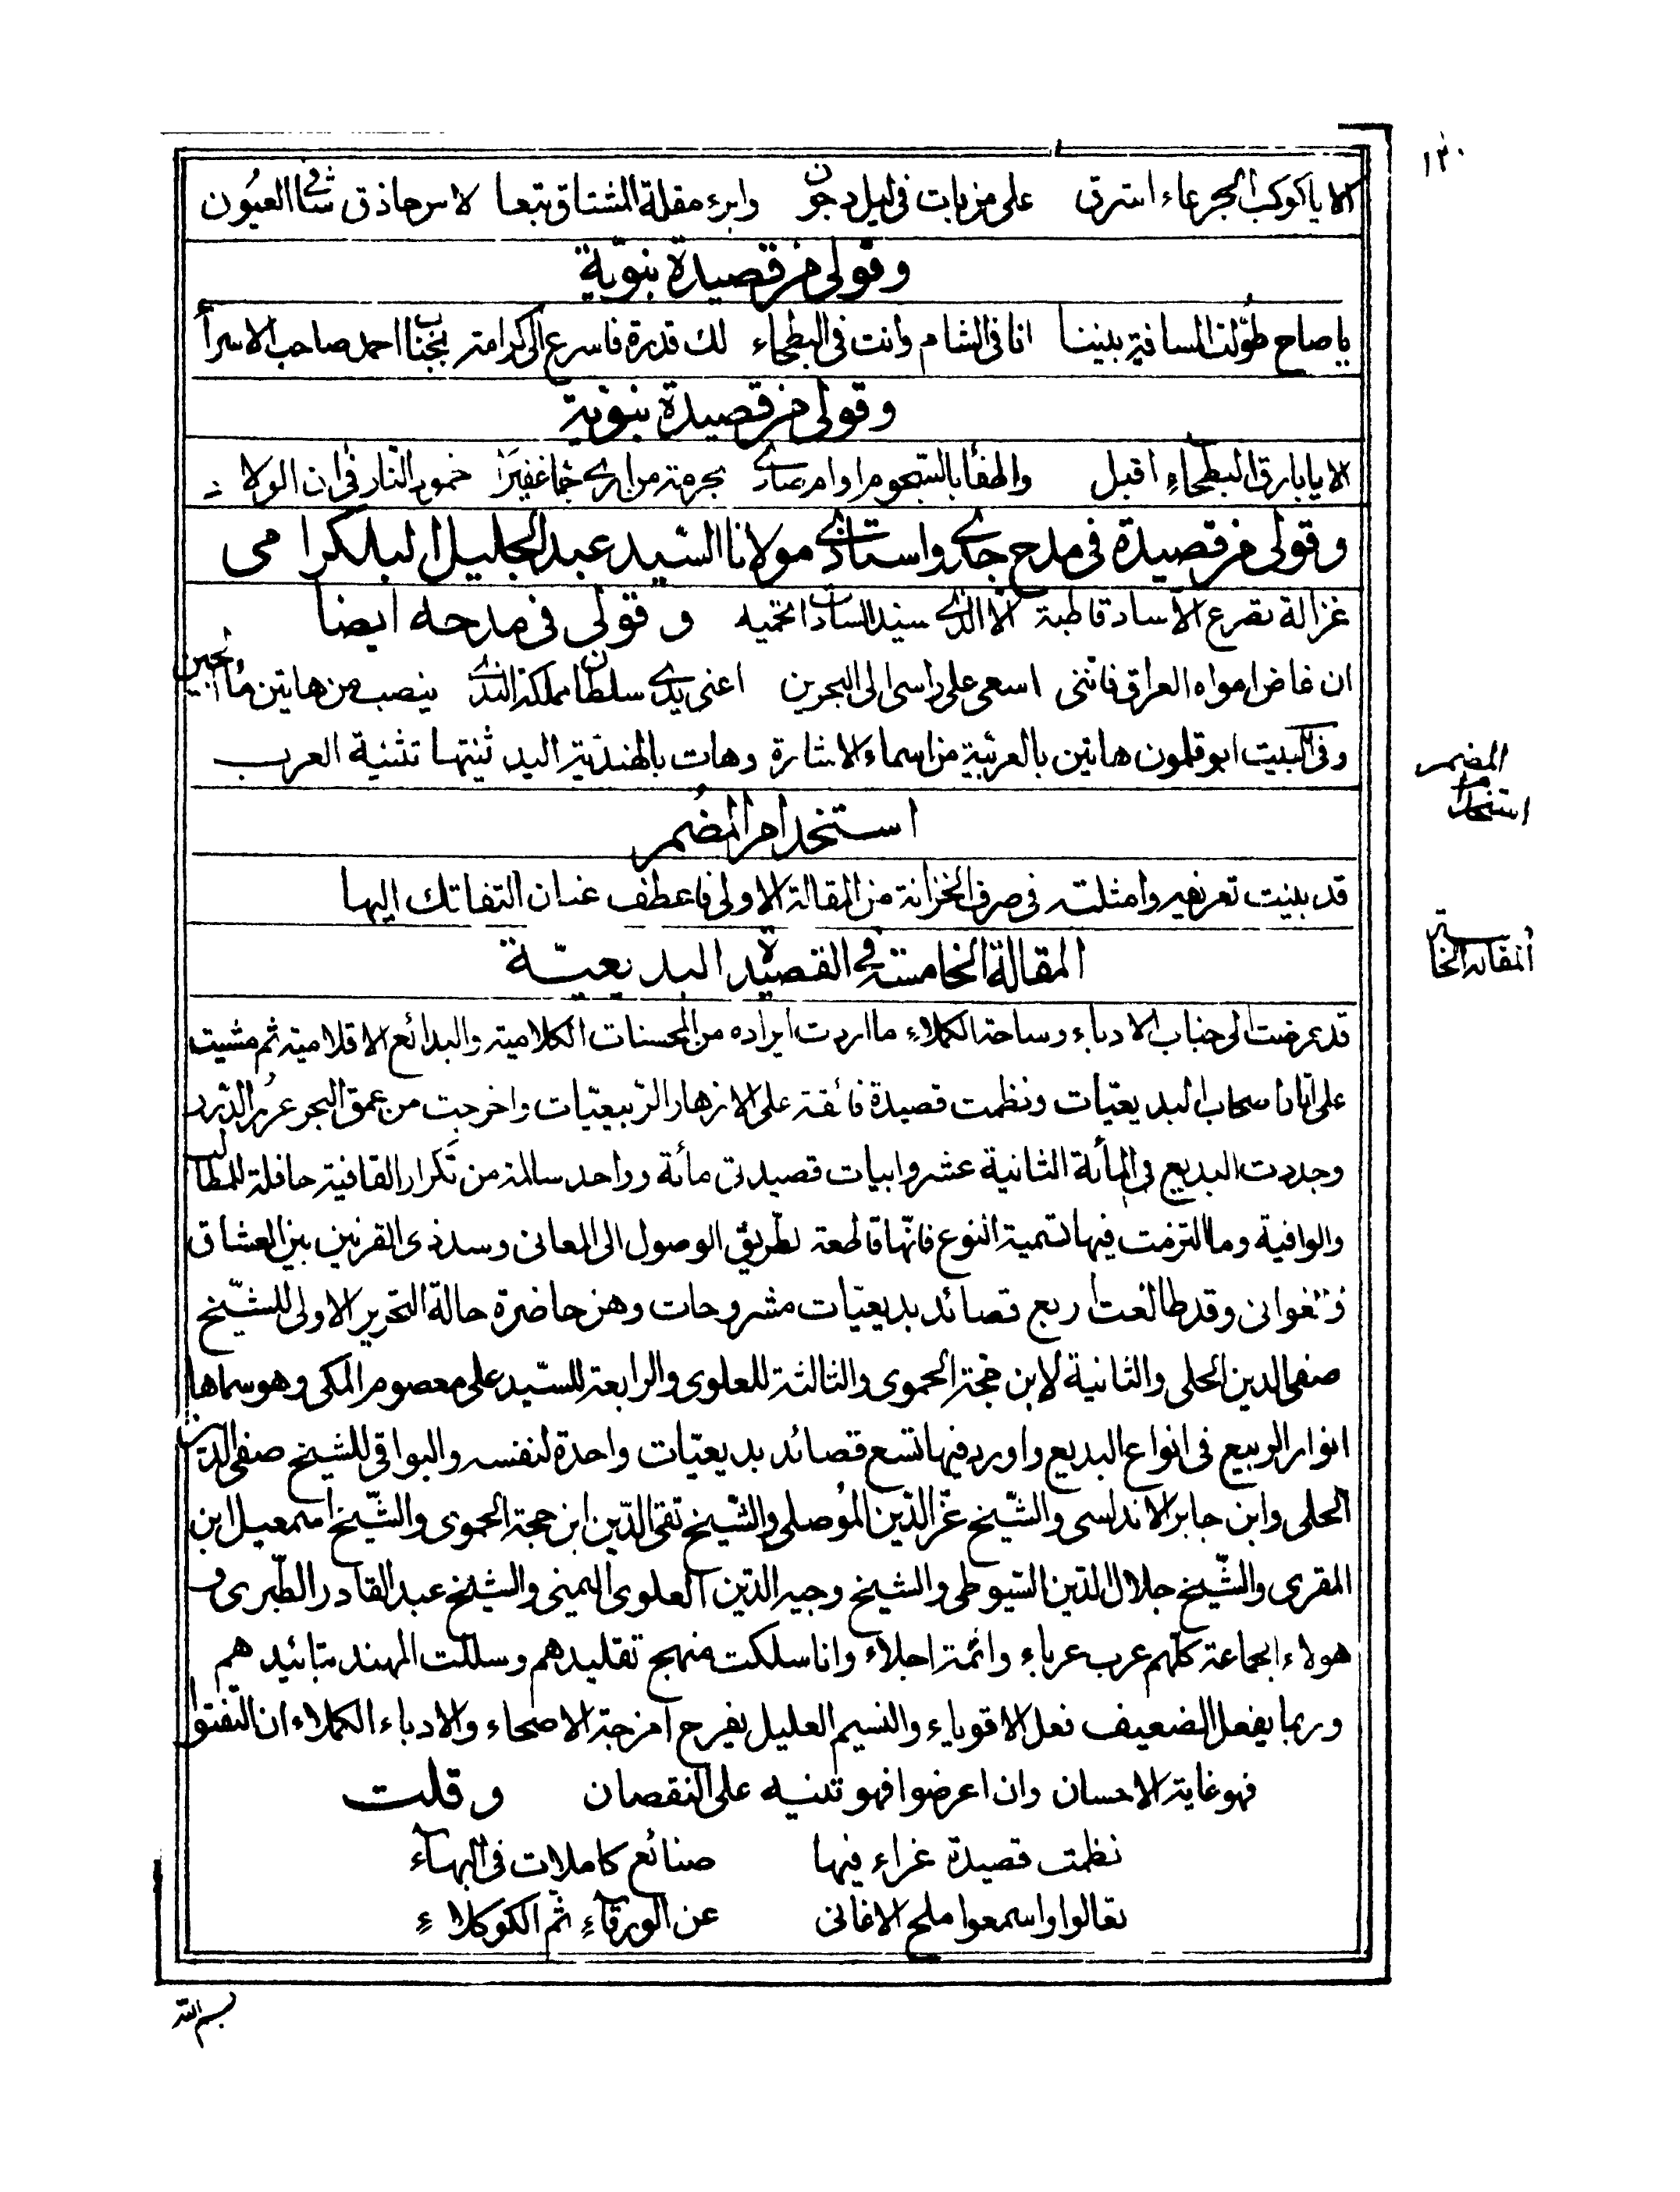 ١٢٠
الا يا كوكب الجرعاء اشرق على من بات فى ليل دجون وابرء مقلة المشتاق تبعا لاسر حاذق شا فى العيون
وقولى من قصيدة نبوية
يا صاح طولت المسافة بيننا انا فى الشام وانت فى البطحاء لك قدرة فاسرع الى كرامة بجناب احمد صاحب الاسراء
وقولى من قصيدة نبوية
الا يا بارق البطحاء اقبل واطفأ بالسجوم اوام صادى بحرمة من ارى جما غفيرا خمود النار فى ان الولاد
وقولى من قصيدة فى مدح جدى واستاذى مولانا السيد عبد الجليل البلكرامى
غزالة تصرع الآساد قاطبة الا الذى سيد السادات تحميه وقولى فى مدحه ايضا
ان غاض امواه العراق فاننى اسعى على راسى الى البحرين اعنى يدى سلطان مملكة الندى ينصب من هاتين ماء لجين
وفى البيت ابو قلمون هاتين بالعربية من اسماء الاشارة وهات بالهندية اليد ثنيتها تثنية العرب
المضمر
استخدام
استخدام المضمر
قد بينت تعريفه وامثلته فى صرف الخزانة من المقالة الاولى فاعطف عنان التفاتك اليها
المقالة الخامسة
المقالة الخامسة فى القصيدة البديعية
قد عرضت الى جناب الادباء وساحة الكملاء ما اردت ايراده من المحسنات الكلامية والبدائع الاقلامية ثم مشيت
على اثار اصحاب البديعيات ونظمت قصيدة فائقة على الازهار الربيعيات واخرجت من عمق البحر غرر الدرر
وجددت البديع فى المأئة الثانية عشر وابيات قصيدتى مائة وواحد سالمة من تكرار القافية حافلة للمطالب
والوافية وما التزمت فيها تسمية النوع فانها قاطعة لطريق الوصول الى المعانى وسد ذى القرنين بين العشاق
والغوانى وقد طالعت اربع قصائد بديعيات مشروحات وهن حاضرة حالة التحرير الاولى للشيخ
صفى الدين الحلى والثانية لابن حجة الحموى والثالثة للعلوى والرابعة للسيد على معصوم المكى وهو سماها
انوار الربيع فى انواع البديع واورد فيها تسع قصائد بديعيات واحدة لنفسه والبواقى للشيخ صفى الدين
الحلى وابن جابر الاندلسى والشيخ عز الدين الموصلى والشيخ تقى الدين ابن حجة الحموى والشيخ اسمعيل ابن
المقرى والشيخ جلال الدين السيوطى والشيخ وجيه الدين العلوى اليمنى والشيخ عبد القادر الطبرى و
هولاء الجماعة كلهم عرب عرباء وائمة اجلاء وانا سلكت منهج تقليدهم وسللت المهند بتائيدهم
وربما يفعل الضعيف فعل الاقوياء والنسيم العليل يفرح امزجة الاصحاء والادباء الكملاء ان التفتوا
فهو غاية الاحسان وان اعرضوا فهو تنبيه على النقصان وقلت
نظمت قصيدة غراء فيها صنائع كاملات فى البهاء
تعالوا واسمعوا ملح الاغانى عن الورقاء ثم الكوكلاء
بسم الله